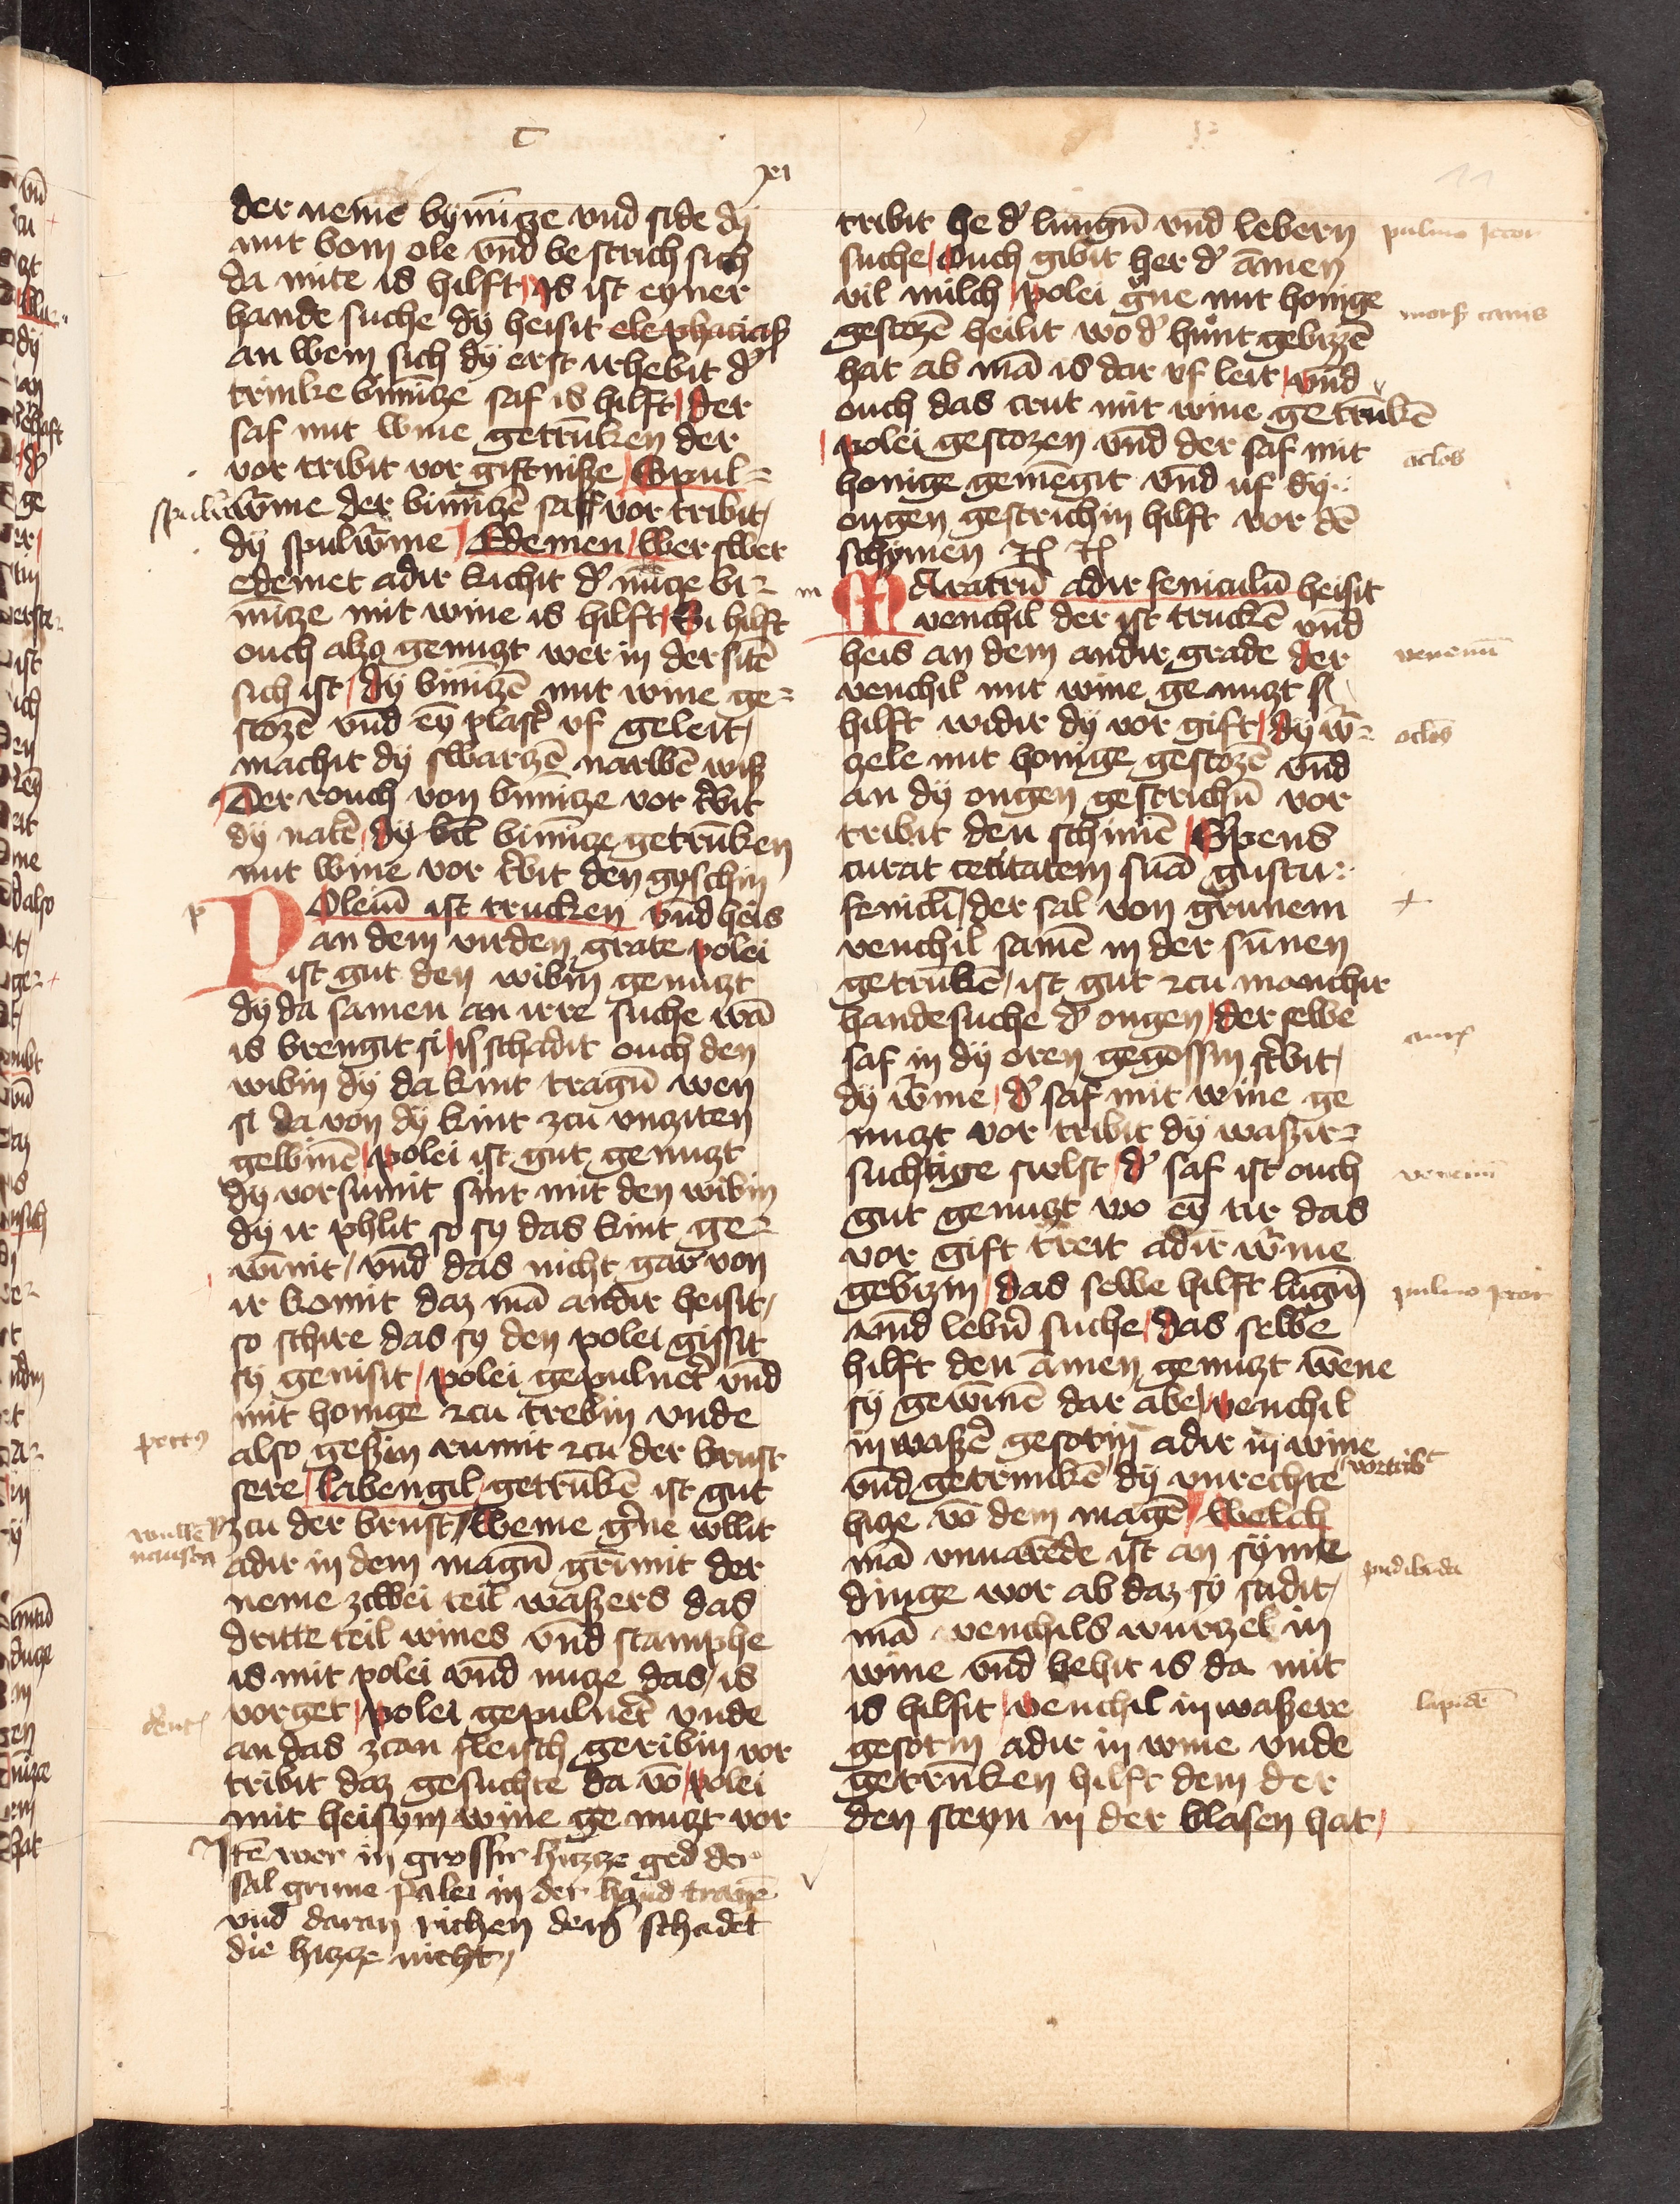 C
xi
11
der neme bymīcze vnd side dy
mit bom ole vnd be strich sich
da mite is hilft / Is ist eyner
hande suche dy heisit elephācias
an wem sich dy erst irhebit d'
trinke bimīcze saf is hilft / der
saf mit wine getrūken der
vor tribit vor giftnisze / Spul=
w'me der bimīczē saff vor tribit /
dy spulw'me / Edemen / Wer swer
edemet adir kichit d' nucze bi=
mīcze mit wine is hilft / Si hilft
ouch alzo genuczt wer in der sitē
sich ist / dy bimīczē mit wine ge=
stozē vnd ey plast' vf geleit /
machit dy swarzē narwē wisz
Der rouch von bimīcze vor t'bit
dy natē / dy bimīcze getrūken
mit wine vor t'bit den gyschin
Poleiū ist trucken vnd heis
an dem virden grate polei
ist gut den wibin genuczt
dy da samen an irre suche wā
is brengit si / is schadit ouch den
wibin dy da kint tragū wen
si da von dy kint zcu vncziten
gewinnē / polei ist gut genuczt
dy vorsumit sint mit den wibin
dy ir phlit so sy das kint ge=
winnit / vnd das nicht gar von
ir komit daz mā andir heisit /
so schire das sy den polei gissit
sy genisit / polei gepulu'et vnd
mit honige zcu trebin vnde
also geszin rumit zcu der brust
sere / labengil getrūkē ist gut
zcu der brust / Weme g'ne wllit
adir in dem magū grimit der
neme zcwei teil waszers das
dritte teil wines vnd stamphe
is mit polei vnd nucze das / is
vorget / polei gepulu'et vnde
an das zcan fleisch geribin vor
tribit daz gesuchte da vō / polei
mit heisym wine ge nuczt vor
Itē wer in grossir hitzcze ged der
sal grune palei in der hand tragē
vnd daran richen dem schadet
die hitzcze nicht /
spulw
p
pectus
wulle
nausea
dent
tribit he d' lungū vnd lebern
suche / Ouch gibit her d' āmen
vil milch / polei g'ne mit honige
gestozē heilit wo d' hunt gebizzē
hat ab mā is dar vf leit / vnd
ouch das crut mit wine getrūkē
polei gestozen vnd der saf mit
honige gemēgit vnd uf dy
ougen gestrichin hilft vor dē
schymen
Maratrū adir feniculū heisit
venchil der ist truckē vnd
heis an dem andir grade der
venchil mit wine genuczt si
hilft widir dy vor gift / dy w'=
zele mit honige gestozē vnd
an dy ougen gestrichū vor
tribit den schimē / S'pens
curat cecitatem suā gustu
feniculi / der saf von grunem
venchil samē in der sūnen
getrūkē / ist gut zcu manchir
handesuche d' ougen / der selbe
saf in dy oren gegossin st'bit /
dy w'me / d' saf mit wine ge
nuczt vor tribit dy waszir=
suchtige swlst / d' saf ist ouch
gut genuczt wo ey tir das
vor gift treit adir w'me
gebizin / das selbe hilft lūgin
vnd leb'n suche / das selbe
hilft den āmen genuczt wene
sy gewinnē dar abe / venchil
in wasz'e gesotin adir in wine
vnd getrunkē dy vnrechte vortribt
hize vō dem magē / Welch
mā vnuarēde ist an syme
dinge wor ab daz sy sudit /
mā venchils wurzel in
wine vnd behit is da mit
is hilfit / venchil in waszere
gesotin adir in wine vnde
getrūken hilft dem der
den steyn in der blasen hat /
m
pulmo Jecor
mors' canis
oclos
venenū
oclos
aures
venenū
pulmo Jecor
pudibūda
lapidē